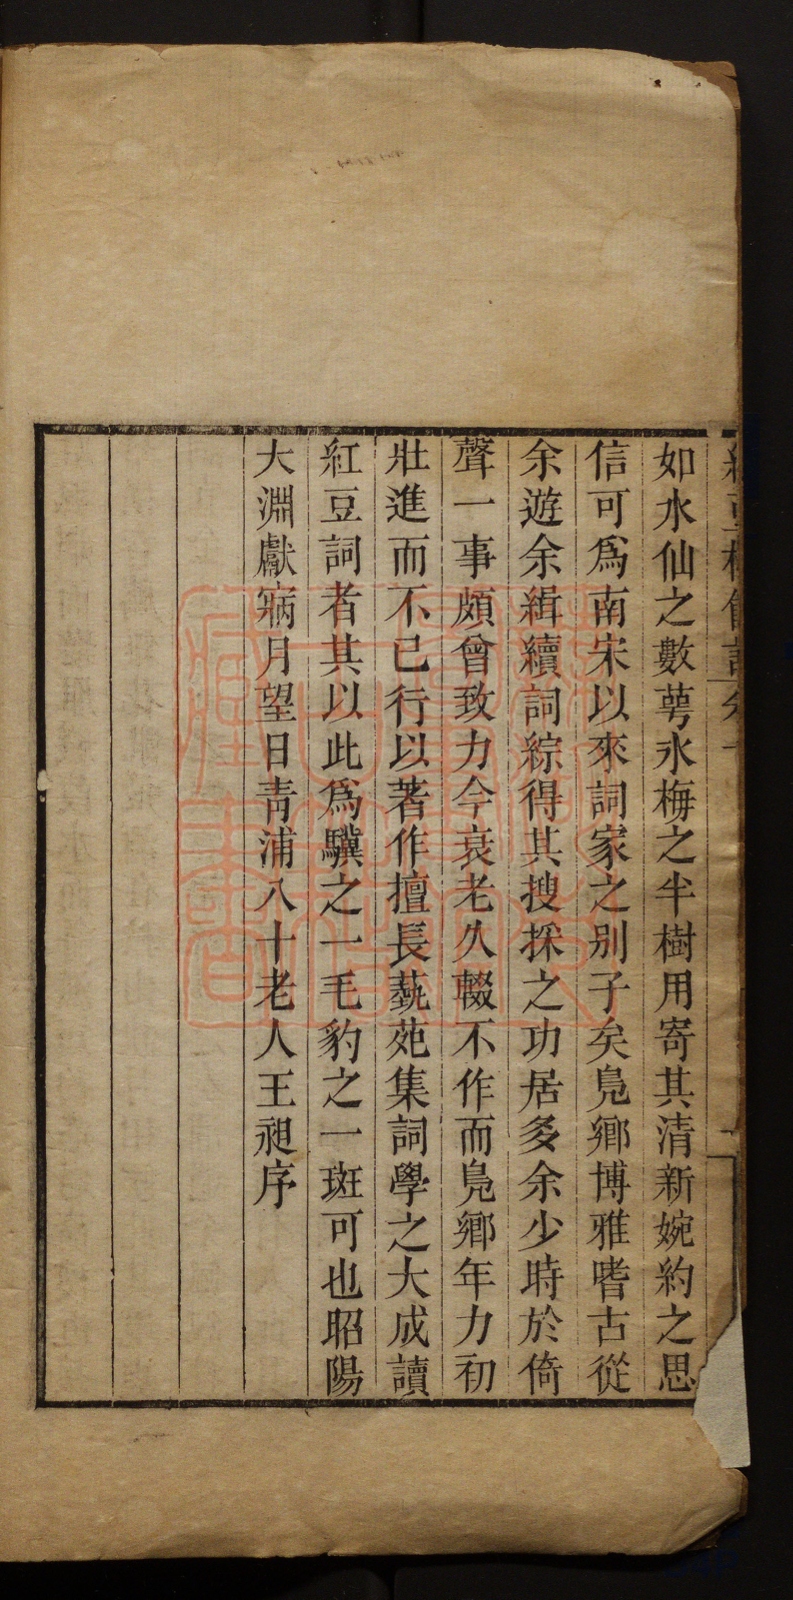 如水仙之數萼氷梅之半樹用寄其清新婉約之思
信可爲南宋以來詞家之別子矣鳧鄉博雅嗜古從
余遊余緝續詞綜得其搜採之功居多余少時於倚
聲一事頗曾致力今衰老久輟不作而鳧鄉年力初
壯進而不已行以著作擅長藝苑集詞學之大成讀
紅豆詞者其以此爲驥之一毛豹之一斑可也昭陽
大淵獻寎月望日青浦八十老人王昶序